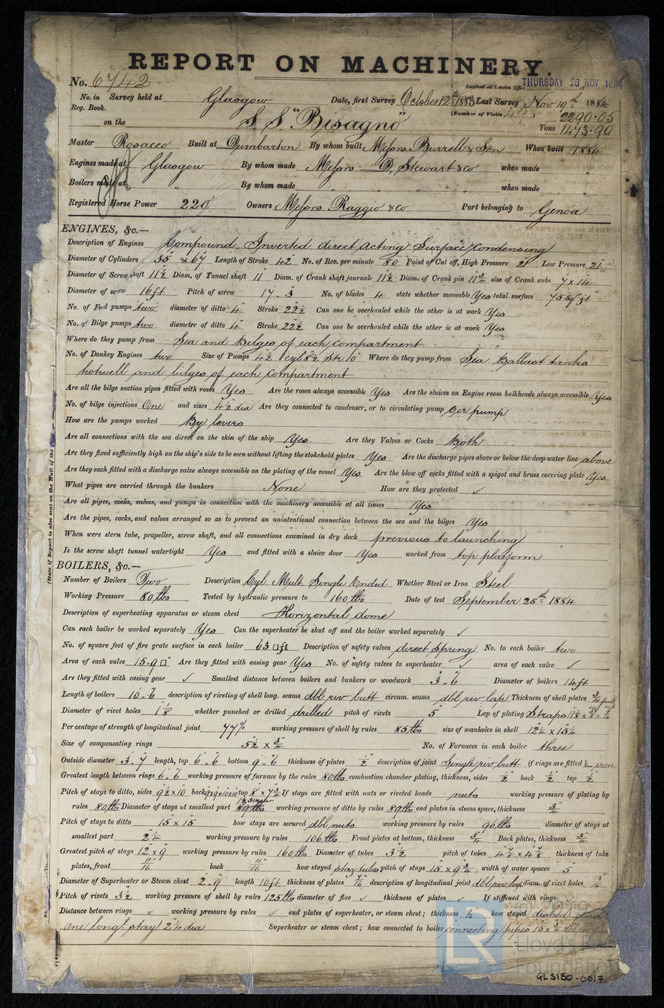 REPORT ON MACHINERY.
No. 6742 THURSDAY 20 NOV 1884
No. in Survey held at Glasgow Date, first Survey October 12th 1883 Last Survey Nov 19th 1884
Reg. Book. (Number of Visits
on the S.S. "Bisagno" Tons 2290.05 1473.90
Master Rosacco Built at Dumbarton By whom built Messrs Burrell & Son When built 1884
Engines made at Glasgow By whom made Messrs D. Stewart & Co when made "
Boilers made at " By whom made " when made "
Registered Horse Power 220 Owners Messrs Raggio & Co Port belonging to Genoa
ENGINES, &c.—
Description of Engines Compound Inverted direct Acting Surface Condensing
Diameter of Cylinders 35 & 67 Length of Stroke 42 No. of Rev. per minute 80 Point of Cut off, High Pressure 21 Low Pressure 21
Diameter of Screw shaft 11½ Diam. of Tunnel shaft 11 Diam. of Crank shaft journals 11½ Diam. of Crank pin 11¾ size of Crank webs 7 x 14
Diameter of screw 16ft Pitch of screw 17.3 No. of blades 4 state whether moveable Yes total surface 75 sq ft
No. of Feed pumps two diameter of ditto 4 Stroke 22½ Can one be overhauled while the other is at work Yes
No. of Bilge pumps two diameter of ditto 4 Stroke 22½ Can one be overhauled while the other is at work Yes
Where do they pump from Sea and Bilges of each compartment
No. of Donkey Engines two Size of Pumps Where do they pump from Sea Ballast tanks
hotwell and bilges of each compartment
Are all the bilge suction pipes fitted with roses Yes Are the roses always accessible Yes Are the sluices on Engine room bulkheads always accessible Yes
No. of bilge injections One and sizes 4½ dia Are they connected to condenser, or to circulating pump Cir pump
How are the pumps worked By levers
Are all connections with the sea direct on the skin of the ship Yes Are they Valves or Cocks Both
Are they fixed sufficiently high on the ship's side to be seen without lifting the stokehold plates Yes Are the discharge pipes above or below the deep water line above
Are they each fitted with a discharge valve always accessible on the plating of the vessel Yes Are the blow off cocks fitted with a spigot and brass covering plate Yes
What pipes are carried through the bunkers None How are they protected ✓
Are all pipes, cocks, valves, and pumps in connection with the machinery accessible at all times Yes
Are the pipes, cocks, and valves arranged so as to prevent an unintentional connection between the sea and the bilges Yes
When were stern tube, propeller, screw shaft, and all connections examined in dry dock previous to launching
Is the screw shaft tunnel watertight Yes and fitted with a sluice door Yes worked from top platform
BOILERS, &c.—
Number of Boilers Two Description Cyl. Mult. Single Ended Whether Steel or Iron Steel
Working Pressure 80 lbs Tested by hydraulic pressure to 160 lbs Date of test September 25th 1884
Description of superheating apparatus or steam chest Horizontal dome
Can each boiler be worked separately Yes Can the superheater be shut off and the boiler worked separately ✓
No. of square feet of fire grate surface in each boiler 63 □ft Description of safety valves direct Spring No. to each boiler two
Area of each valve 15.9 □" Are they fitted with easing gear Yes No. of safety valves to superheater ✓ area of each valve ✓
Are they fitted with easing gear ✓ Smallest distance between boilers and bunkers or woodwork 3.6 Diameter of boilers 14ft
Length of boilers 10.6 description of riveting of shell long. seams dbl riv butt circum. seams dbl riv lap Thickness of shell plates
Diameter of rivet holes whether punched or drilled drilled pitch of rivets 5 Lap of plating Straps
Per centage of strength of longitudinal joint 77% working pressure of shell by rules 85 lbs size of manholes in shell 12¼ x 15¼
Size of compensating rings 5½ x ¾ No. of Furnaces in each boiler three
Outside diameter 3.7 length, top 6.6 bottom 9.6 thickness of plates ½ description of joint Single riv butt if rings are fitted
Greatest length between rings 6.6 working pressure of furnace by the rules 80 lbs combustion chamber plating, thickness, sides ½ back ½ top ½
Pitch of stays to ditto, sides 9½ x 10 back top 8 x 7½ If stays are fitted with nuts or riveted heads nuts working pressure of plating by
rules 80 lbs Diameter of stays at smallest part working pressure of ditto by rules 89 lbs end plates in steam space, thickness ¾
Pitch of stays to ditto 15 x 15 how stays are secured dbl nuts working pressure by rules 96 lbs diameter of stays at
smallest part 2¼ working pressure by rules 106 lbs Front plates at bottom, thickness ¾ Back plates, thickness ¾
Greatest pitch of stays 12 x 9 working pressure by rules 160 lbs Diameter of tubes 3½ pitch of tubes thickness of tube
plates, front 11/16 back 11/16 how stayed stay tubes pitch of stays 15 x 9¾ width of water spaces 5
Diameter of Superheater or Steam chest 2.9 length 10ft thickness of plates description of longitudinal joint dbl riv lap diam. of rivet holes
Pitch of rivets 3½ working pressure of shell by rules 125 lbs diameter of flue ✓ thickness of plates ✓ If stiffened with rings ✓
Distance between rings ✓ working pressure by rules ✓ end plates of superheater, or steam chest; thickness how stayed
One long stay 2¼ dia Superheater or steam chest; how connected to boiler connecting pipes
GLS150-0017